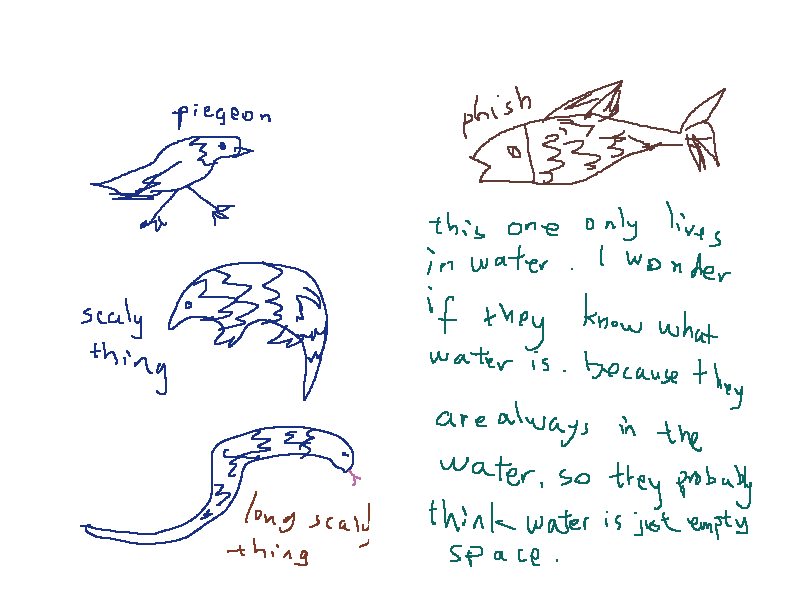 piegeon
scaly
thing
long scaly
thing
phish
this one only lives
in water. I wonder
if they know what
water is. because they
are always in the
water, so they probably
think water is just empty
space.